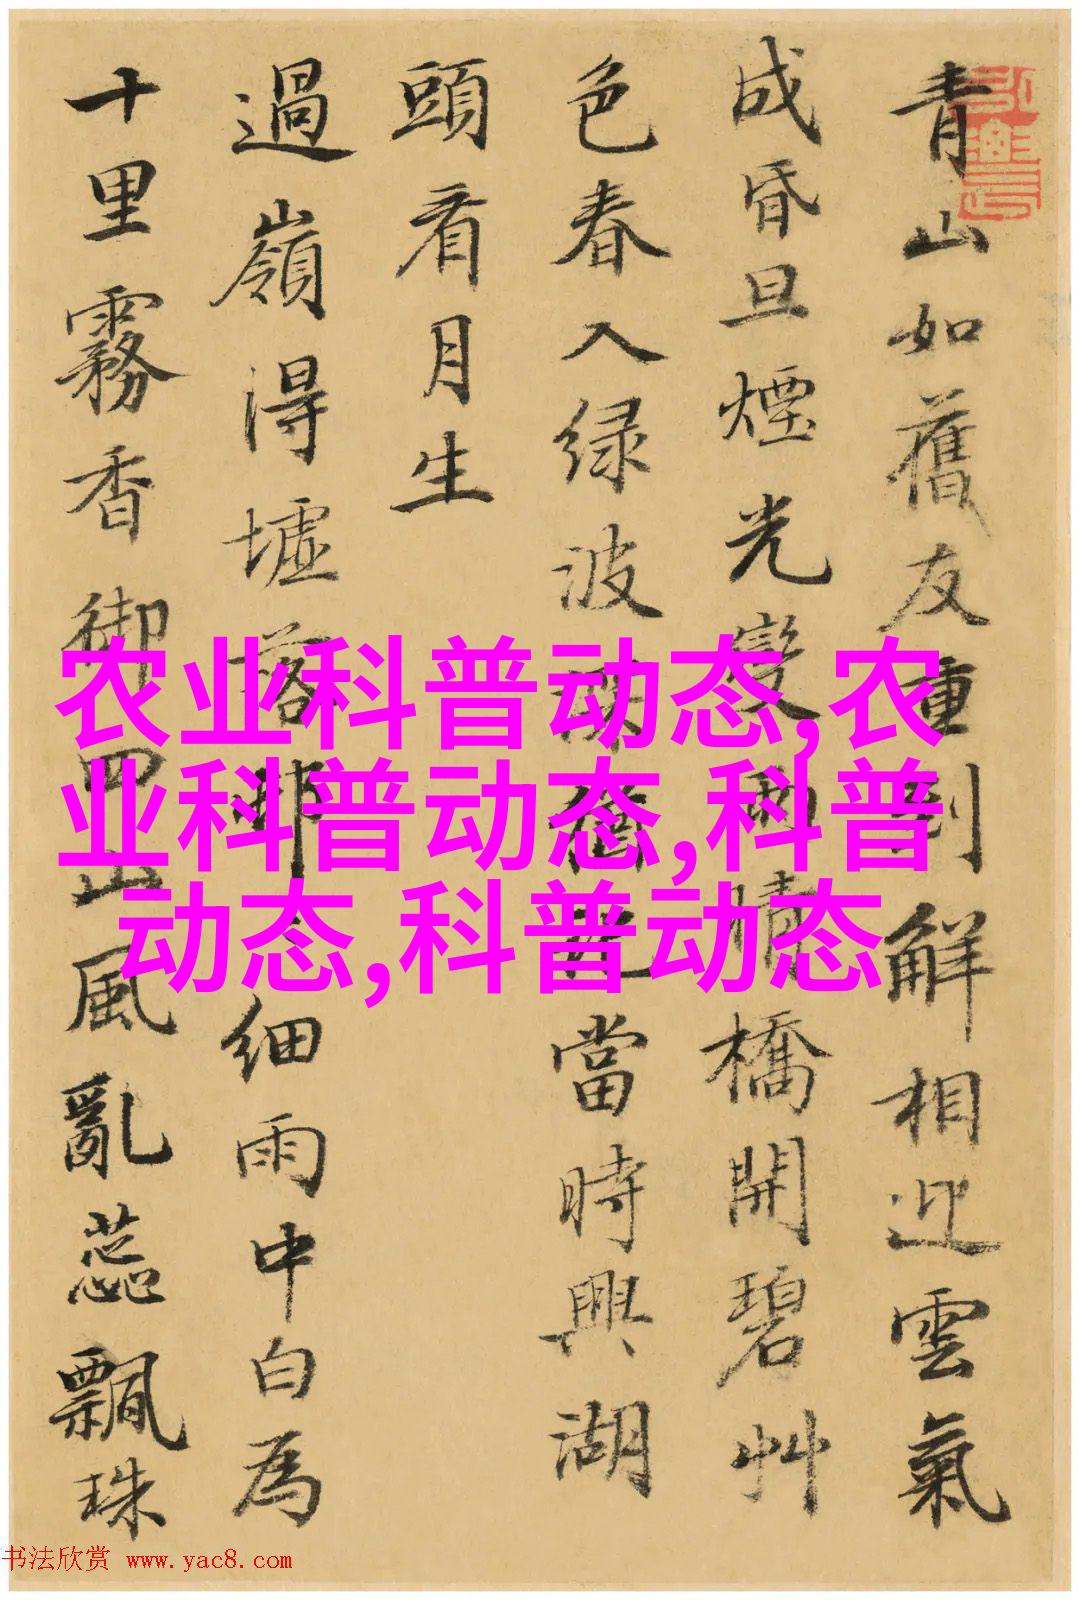 青山如舊友重到解相迎雲氣
成昏旦煙光變雨晴橋開碧艸
色春入绿波當時興湖
頭看月生
過嶺得墟落細雨中白為
十里霧香御四山風亂蕊飄珠
农业科普动态,农
业科普动态,科普
动态,科普动态
书法欣赏 www.yac8.com